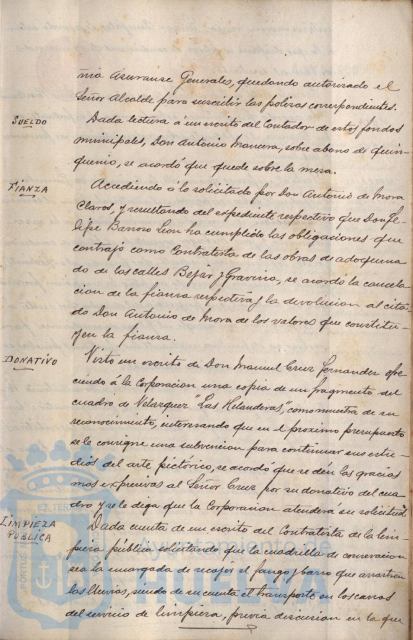 ñia Assuranse Generales, quedando autorizado el
Señor Alcalde para suscribir las polizas correspondientes.
SUELDO
Dada lectura á un escrito del Contador de estos fondos
municipales, Don Antonio Mancera, sobre abono de quin-
quenio, se acordó que quede sobre la mesa.
FIANZA
Accediendo á lo solicitado por Don Antonio de Mora
Claros, y resultando del expediente respectivo que Don Fe-
lipe Barroso Leon ha cumplido las obligaciones que
contrajo como Contratista de las obras de adoquina-
do de las calles Bejar y Gravina, se acordó la cancela-
cion de la fianza respectiva y la devolucion al cita-
do Don Antonio de Mora de los valores que constitu-
yen la fianza.
DONATIVO
Visto un escrito de Don Manuel Cruz Fernandez ofre-
ciendo á la Corporacion una copia de un fragmento del
cuadro de Velazquez "Las Hilanderas", como muestra de su
reconocimiento, interesando que en el proximo presupuesto
se le consigne una subvencion para continuar sus estu-
dios del arte pictórico, se acordó que se dén las gracias
mas expresivas al Señor Cruz por su donativo del cua-
dro y se le diga que la Corporacion atendera su solicitud.
LIMPIEZA
PÚBLICA
Dada cuenta de un escrito del Contratista de la lim-
pieza pública solicitando que la cuadrilla de conservacion
sea la encargada de recojer el fango y barro que arrastren
las lluvias, siendo de su cuenta el transporte en los carros
del servicio de limpieza, previa discusion en la que